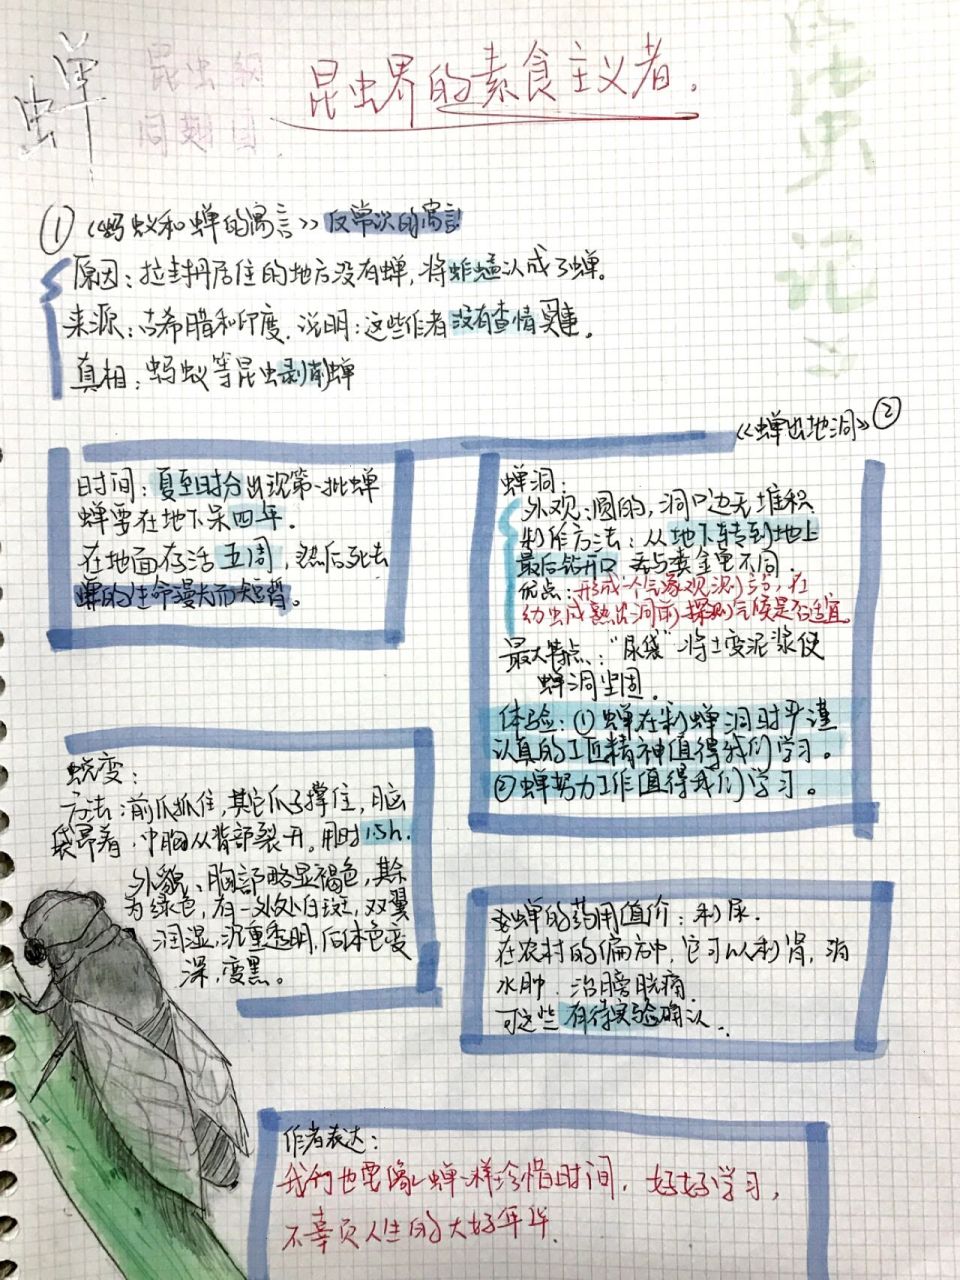 蝉
昆虫界的素食主义者。
① 《蚂蚁和蝉的寓言》反常识的寓言
原因：拉封丹居住的地方没有蝉，将蚱蜢认成了蝉。
来源：古希腊和印度. 说明：这些作者没有查情实事。
真相：蚂蚁等昆虫剥削蝉
《蝉出地洞》②
时间：夏至时分出现第一批蝉
蝉要在地下呆四年.
在地面存活五周，然后死去
蝉的生命漫长而短暂。
蝉洞：
外观：圆的，洞口边无堆积
制作方法：从地下转到地上
最后钻开口 与粪金龟不同.
优点：形成一个气象观测站，在
幼虫成熟出洞前探测气候是否适宜
最大特点："尿袋"将土变泥浆使
蝉洞坚固.
体验：①蝉在制蝉洞时严谨
认真的工匠精神值得我们学习。
②蝉努力工作值得我们学习。
蜕变：
方法：前爪抓住，其它爪子撑住，脑
袋昂着，中胸从背部裂开。用时
外貌：胸部略显褐色，其余
为绿色，有一处处白斑，双翼
润湿，沉重透明，后体色变
深，变黑。
蝉的药用值价：利尿.
在农村的偏方中，它可以利肾，消
水肿. 治膀胱痛.
可这些有待实验确认.
作者表达：
我们也要像蝉一样珍惜时间，好好学习，
不辜负人生的大好年华